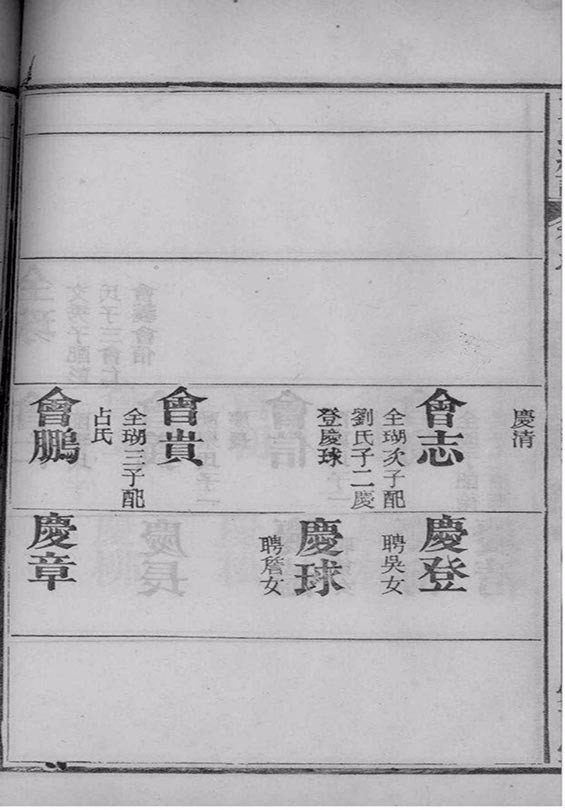 慶清
會志
全瑚次子配
劉氏子二慶
登慶球
會貴
全瑚三子配
占氏
會鵬
慶登
聘吳女
慶球
聘詹女
慶章